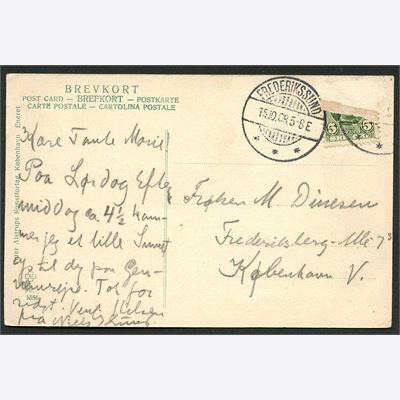 BREVKORT
POST CARD — BREFKORT — POSTKARTE
CARTE POSTALE — CARTOLINA POSTALE
FREDERIKSSUND
15.10.08.5-8 E
5 5
Kære Tante Marie
Paa Lørdag Efter
middag ca 4½ kom-
mer jeg et lille Smut
op til dig paa Gen-
nemrejse. Tak for
sidst. Venl. Hilsen
fra Niels
Frøken M. Dinesen
Frederiksberg Alle 73
København V.
Peter Alstrups Kunstforlag, København Eneret